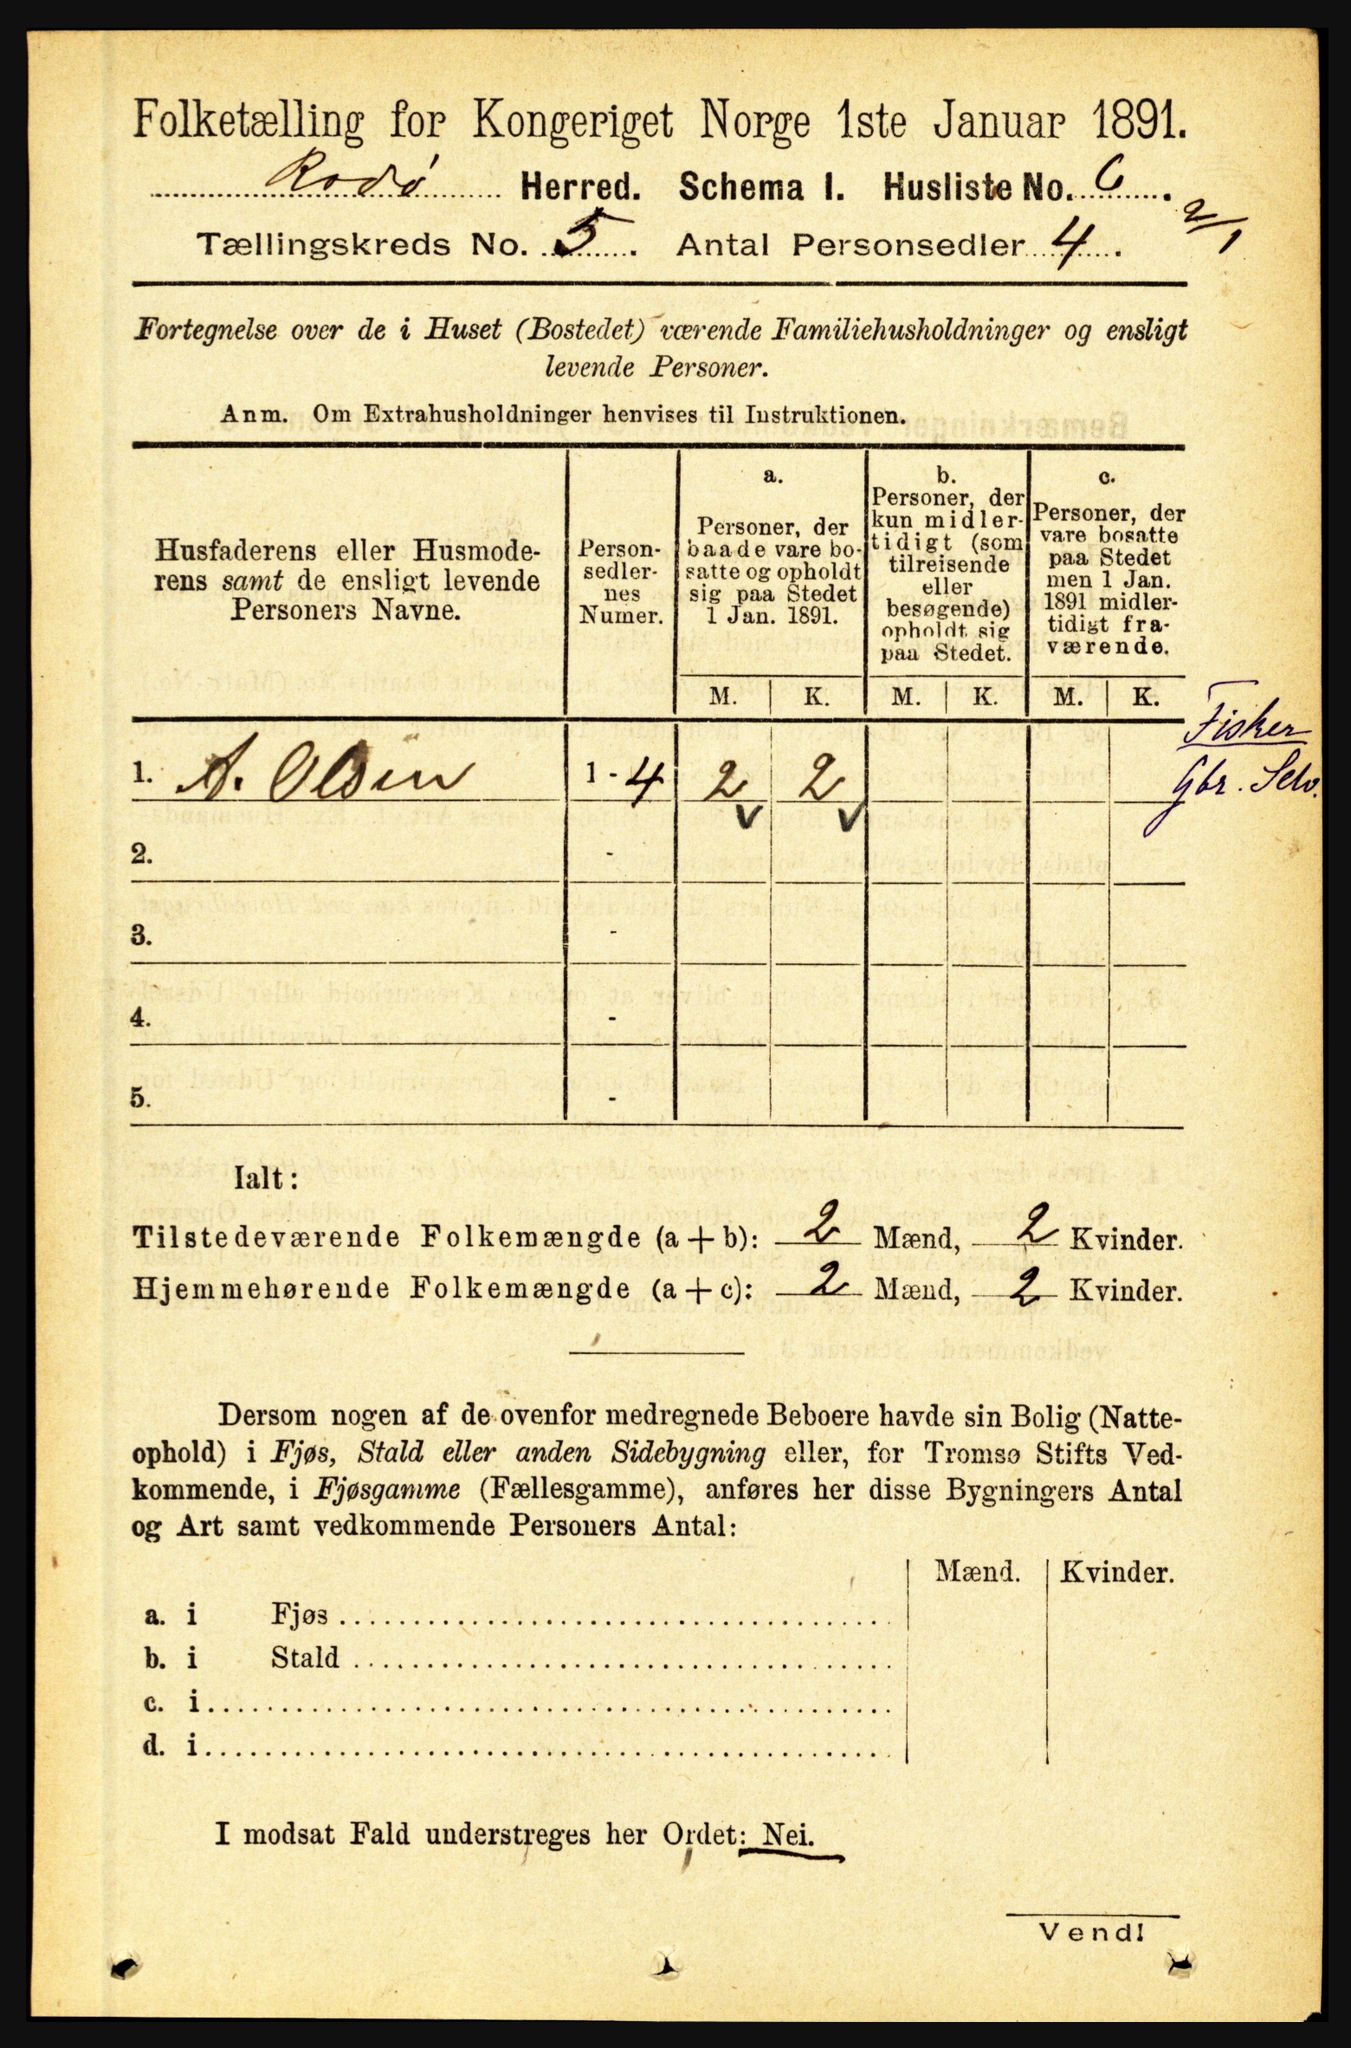 Folketælling for Kongeriget Norge 1ste Januar 1891.
Rodø Herred. Schema I. Husliste No. 6.
2/1
Tællingskreds No. 5. Antal Personsedler 4.
Fortegnelse over de i Huset (Bostedet) værende Familiehusholdninger og ensligt
levende Personer.
Anm. Om Extrahusholdninger henvises til Instruktionen.
Husfaderens eller Husmode-
rens samt de ensligt levende
Personers Navne.
Person-
sedler-
nes
Numer.
a.
Personer, der
baade vare bo-
satte og opholdt
sig paa Stedet
1 Jan. 1891.
b.
Personer, der
kun midler-
tidigt (som
tilreisende
eller
besøgende)
opholdt sig
paa Stedet.
c.
Personer, der
vare bosatte
paa Stedet
men 1 Jan.
1891 midler-
tidigt fra-
værende.
M. K. M. K. M. K.
Fisker
1. A. Olsen 1 - 4 2 2 Gbr. Selv.
2. -
3. -
4. -
5. -
Ialt:
Tilstedeværende Folkemængde (a + b): 2 Mænd, 2 Kvinder.
Hjemmehørende Folkemængde (a + c): 2 Mænd, 2 Kvinder.
Dersom nogen af de ovenfor medregnede Beboere havde sin Bolig (Natte-
ophold) i Fjøs, Stald eller anden Sidebygning eller, for Tromsø Stifts Ved-
kommende, i Fjøsgamme (Fællesgamme), anføres her disse Bygningers Antal
og Art samt vedkommende Personers Antal:
Mænd. Kvinder.
a. i Fjøs
b. i Stald
c. i
d. i
I modsat Fald understreges her Ordet: Nei.
Vend!